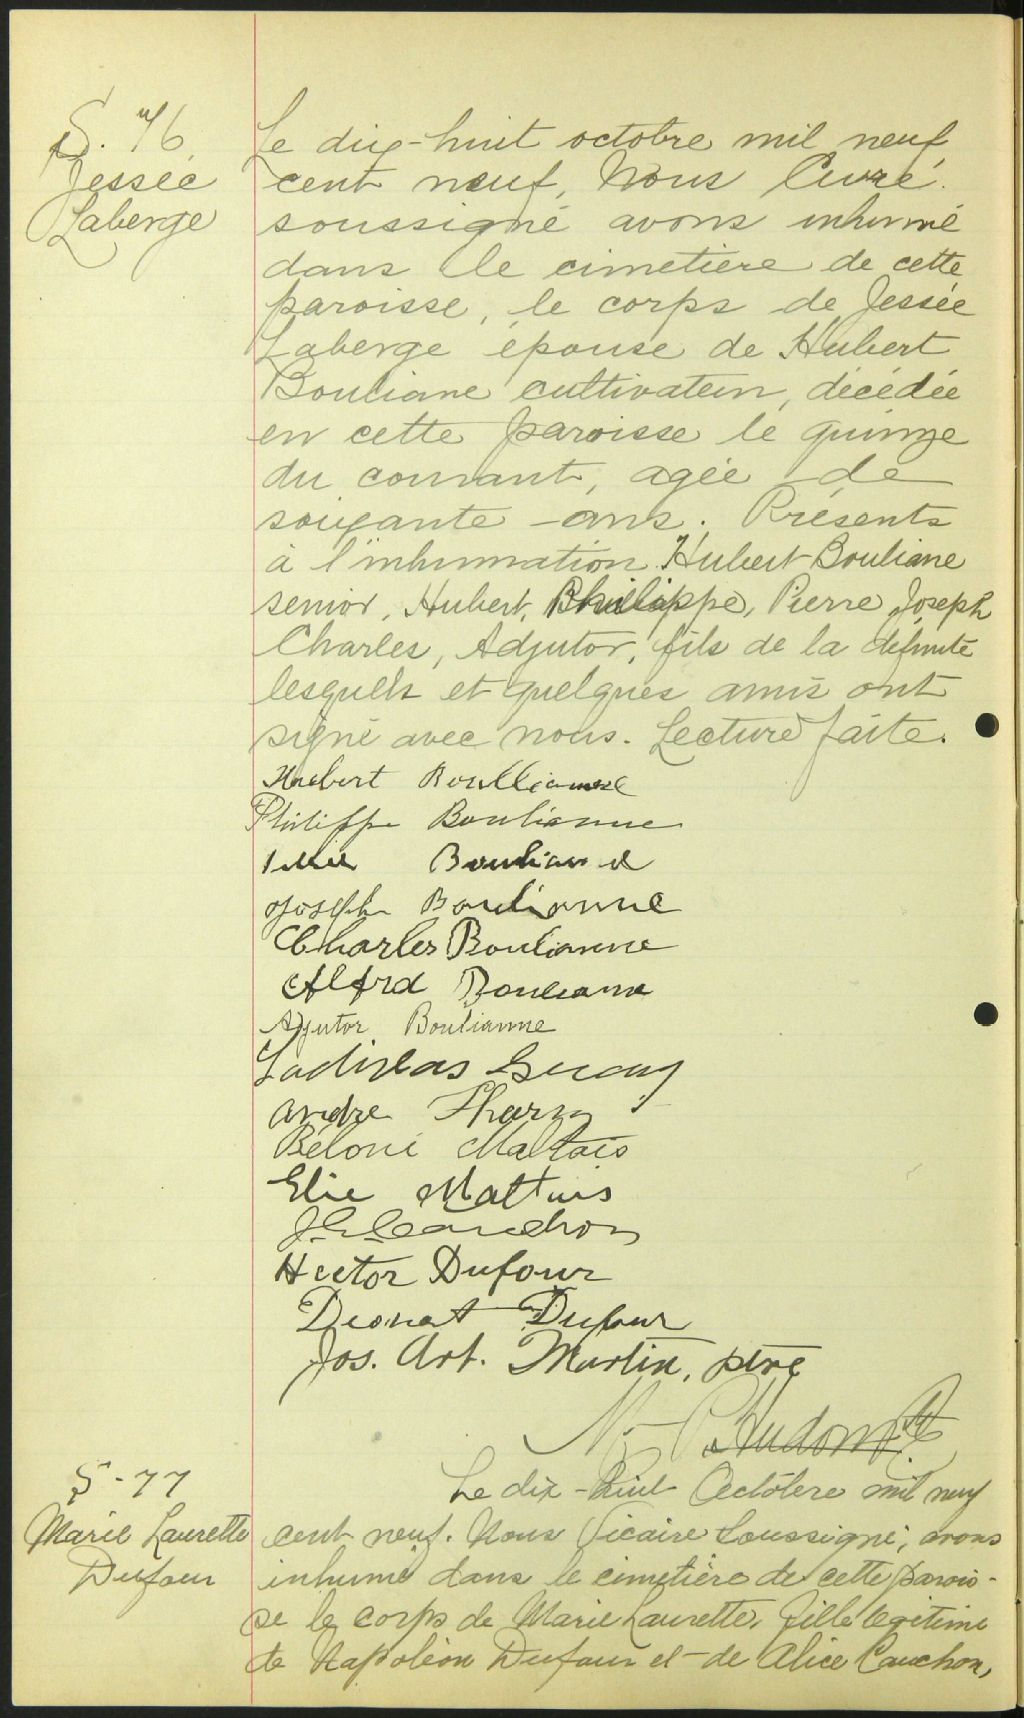 S. 76.
Jessée
Laberge
Le dix-huit octobre mil neuf
cent neuf, Nous Curé
soussigné avons inhumé
dans le cimetière de cette
paroisse, le corps de Jessée
Laberge épouse de Hubert
Bouliane cultivateur, décédée
en cette paroisse le quinze
du courant, agée de
soixante ans. Présents
à l'inhumation Hubert Bouliane
senior, Hubert, Philippe, Pierre Joseph
Charles, Adjutor, fils de la défunte
lesquels et quelques amis ont
signé avec nous. Lecture faite.
Hubert Boullianne
Philippe Boulianne
Bouliane
Joseph Boulianne
Charles Boulianne
Alfrd Bouliane
Adjutor Boulianne
Ladislas
andre Tharn
Béloni Maltais
Elie Mattais
J. E. Gaudron
Hector Dufour
Dionat Dufour
Jos. Art. Martin, ptre
Hudon Ptr
S-77
Marie Laurette
Dufour
Le dix-huit Octobre mil neuf
cent neuf. Nous Vicaire Soussigné, avons
inhumé dans le cimetière de cette parois-
se le corps de Marie Laurette, fille légitime
de Napoléon Dufour et de Alice Cauchon,